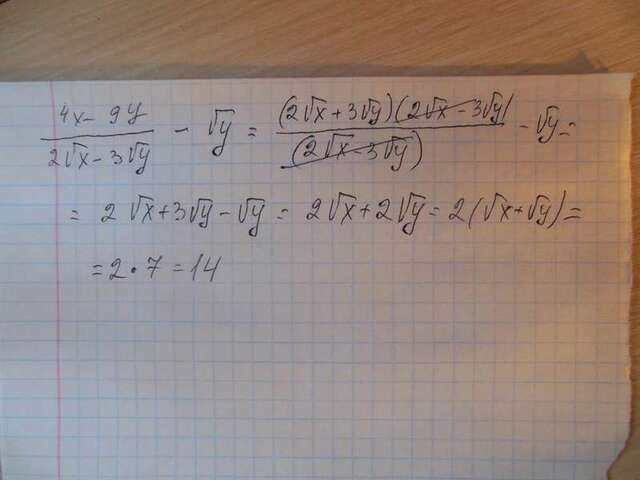 (4x - 9y)/(2√x - 3√y) - √y = (2√x + 3√y)(2√x - 3√y)/(2√x - 3√y) - √y =
= 2√x + 3√y - √y = 2√x + 2√y = 2(√x + √y) =
= 2 • 7 = 14